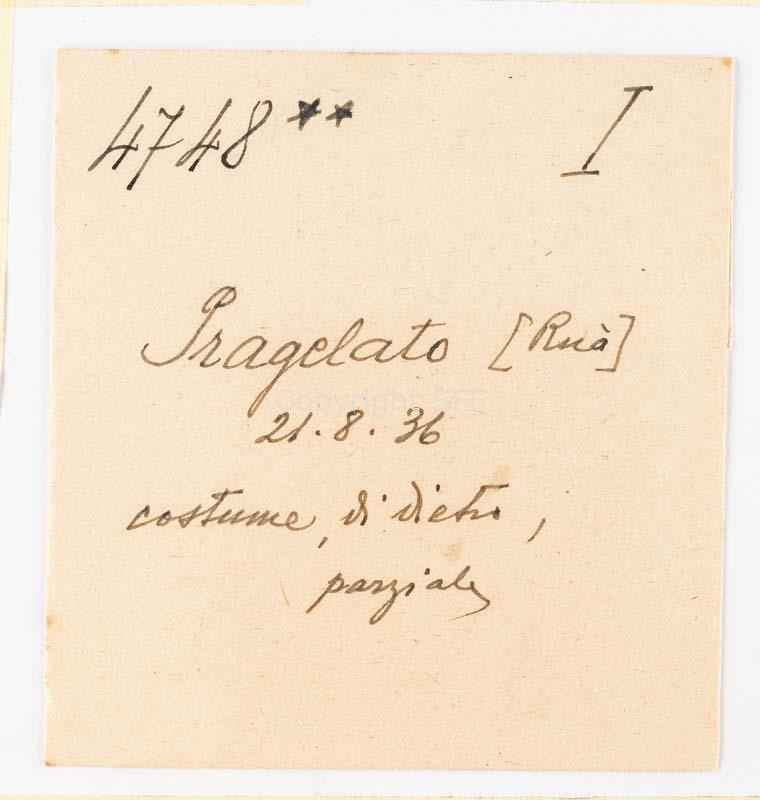 4748** I
Pragelato [Ruà]
21.8.36
costume, di dietro,
parziale